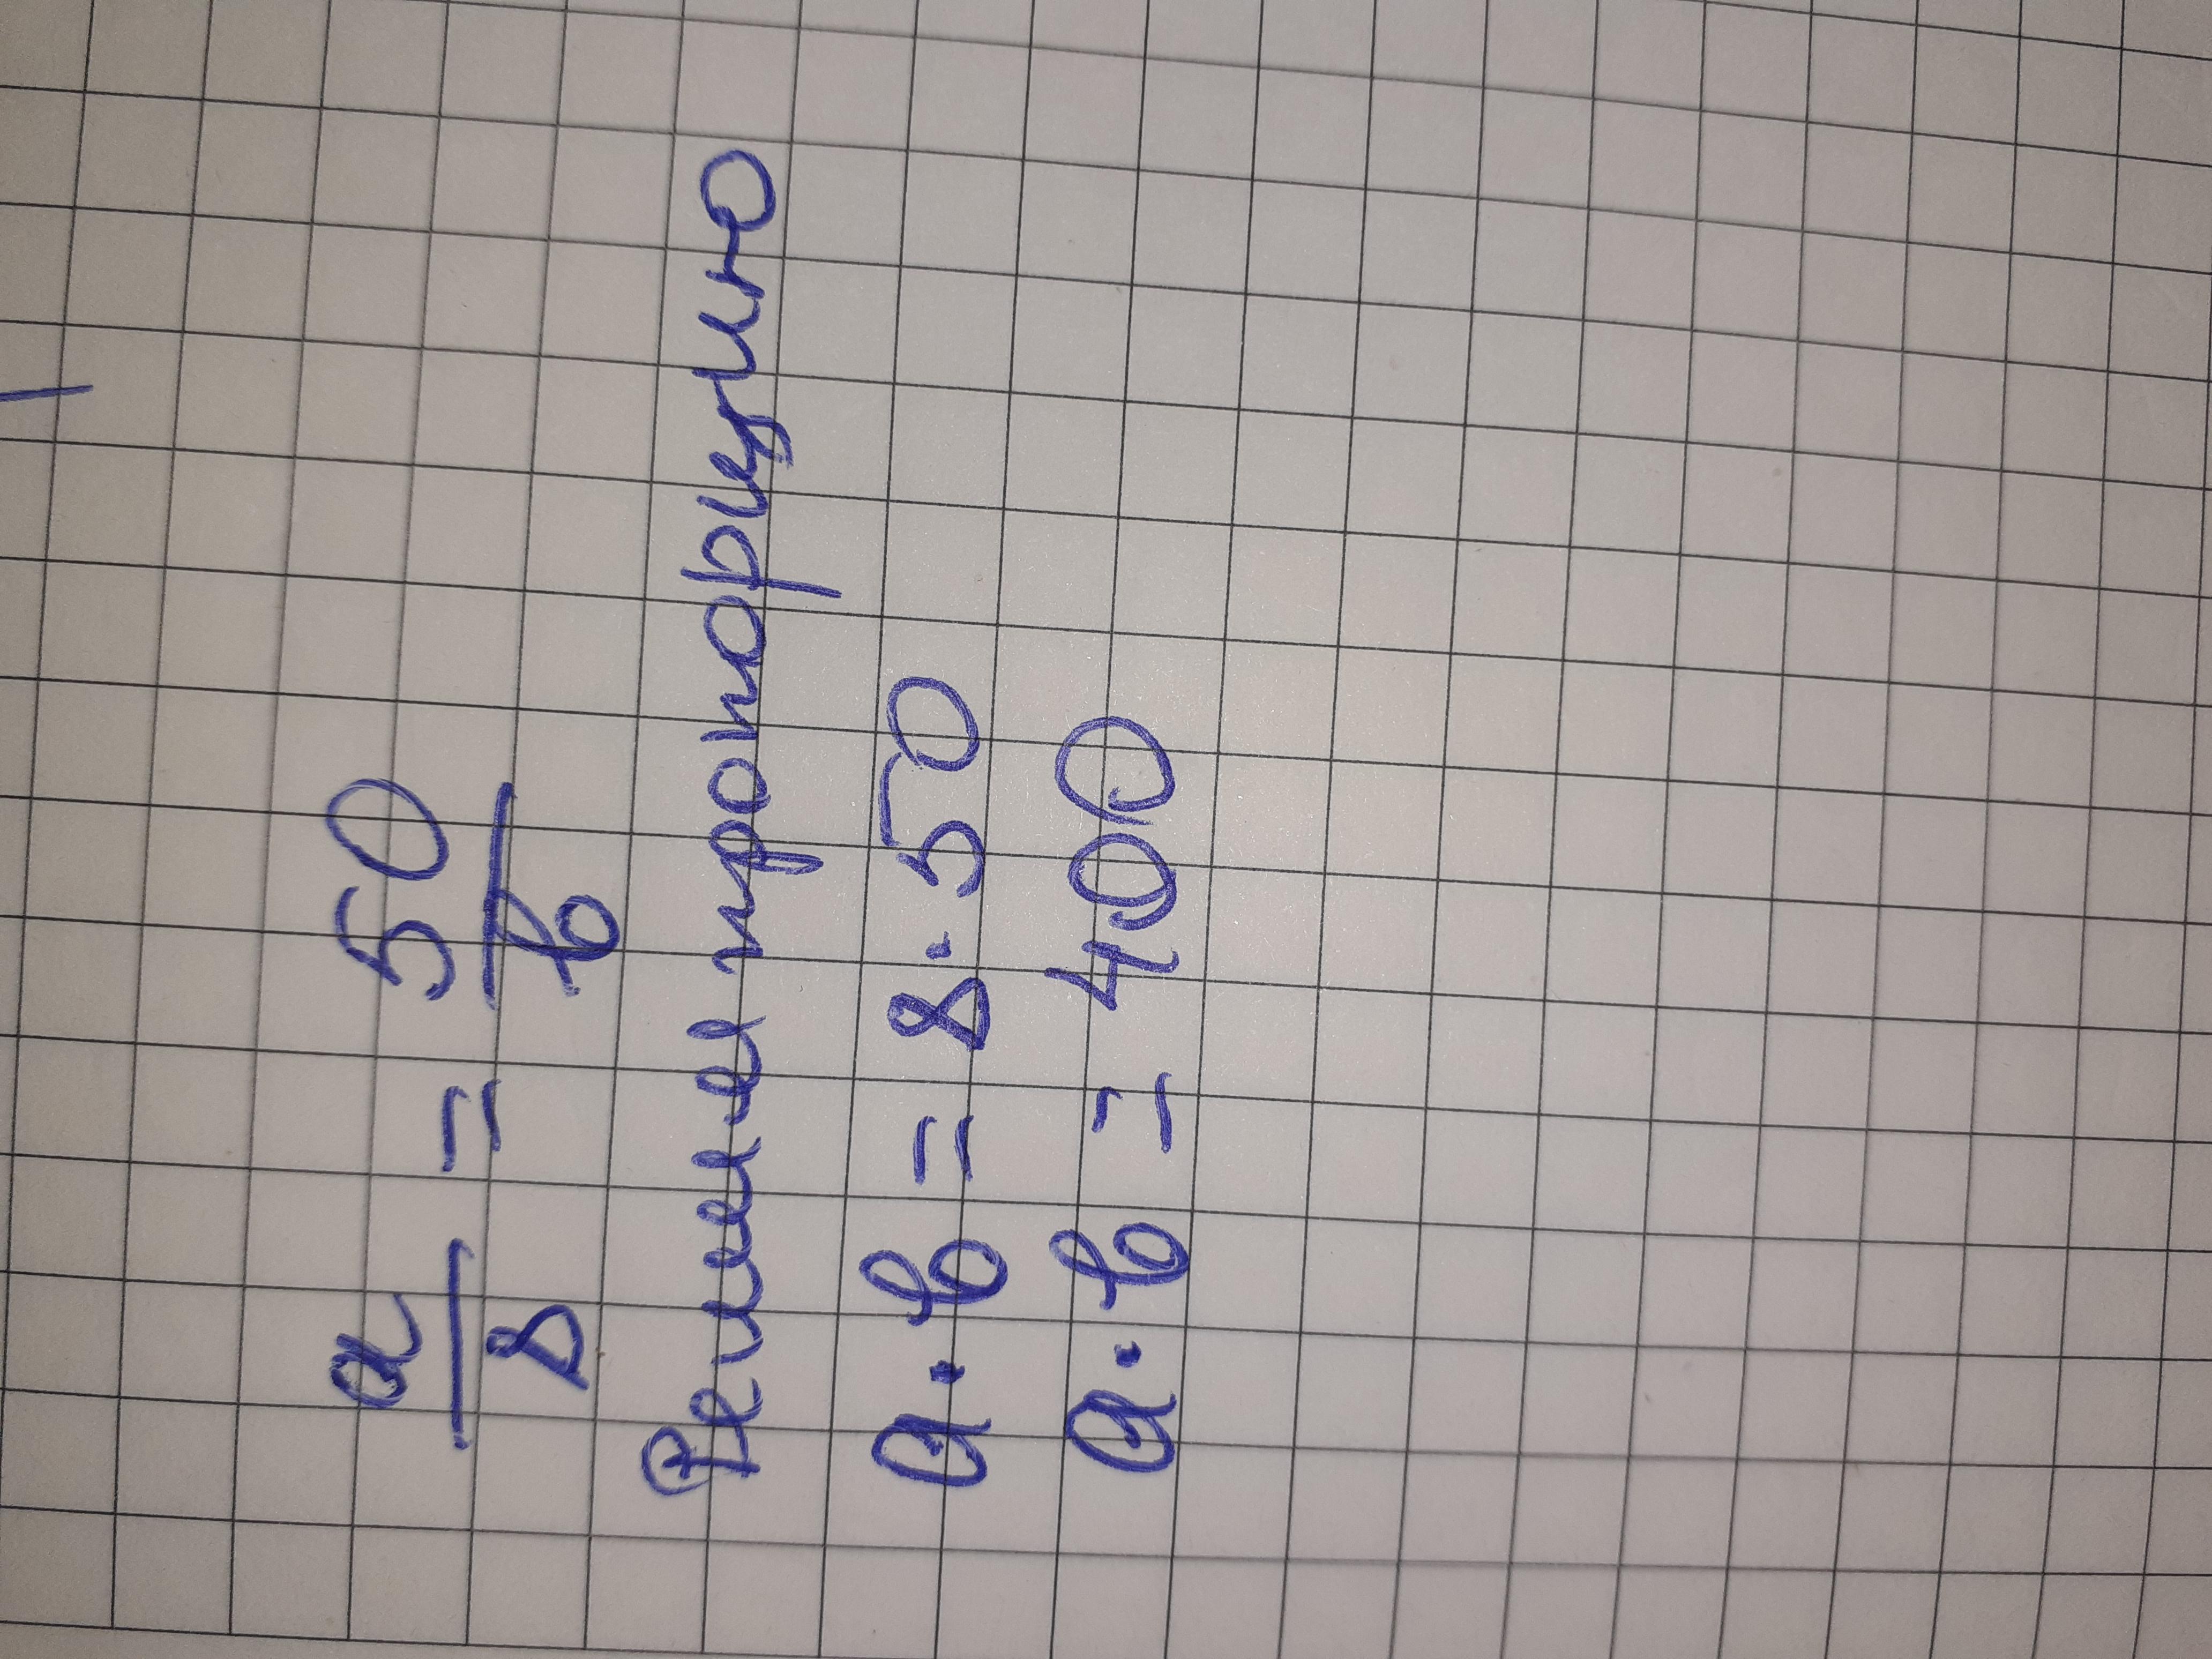 a/8 = 50/b
Решим пропорцию
a · b = 8 · 50
a · b = 400